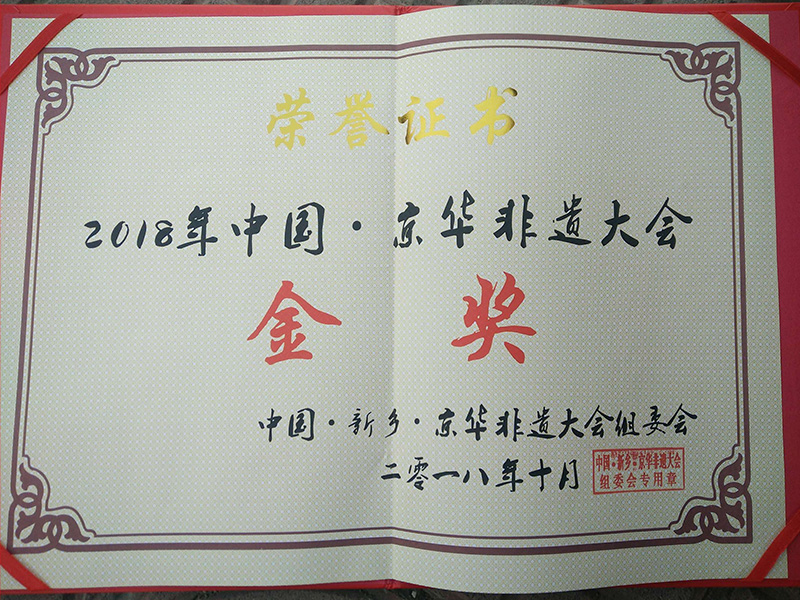 荣誉证书
2018年中国·京华非遗大会
金奖
中国·新乡·京华非遗大会组委会
二零一八年十月
中国·新乡·京华非遗大会
组委会专用章